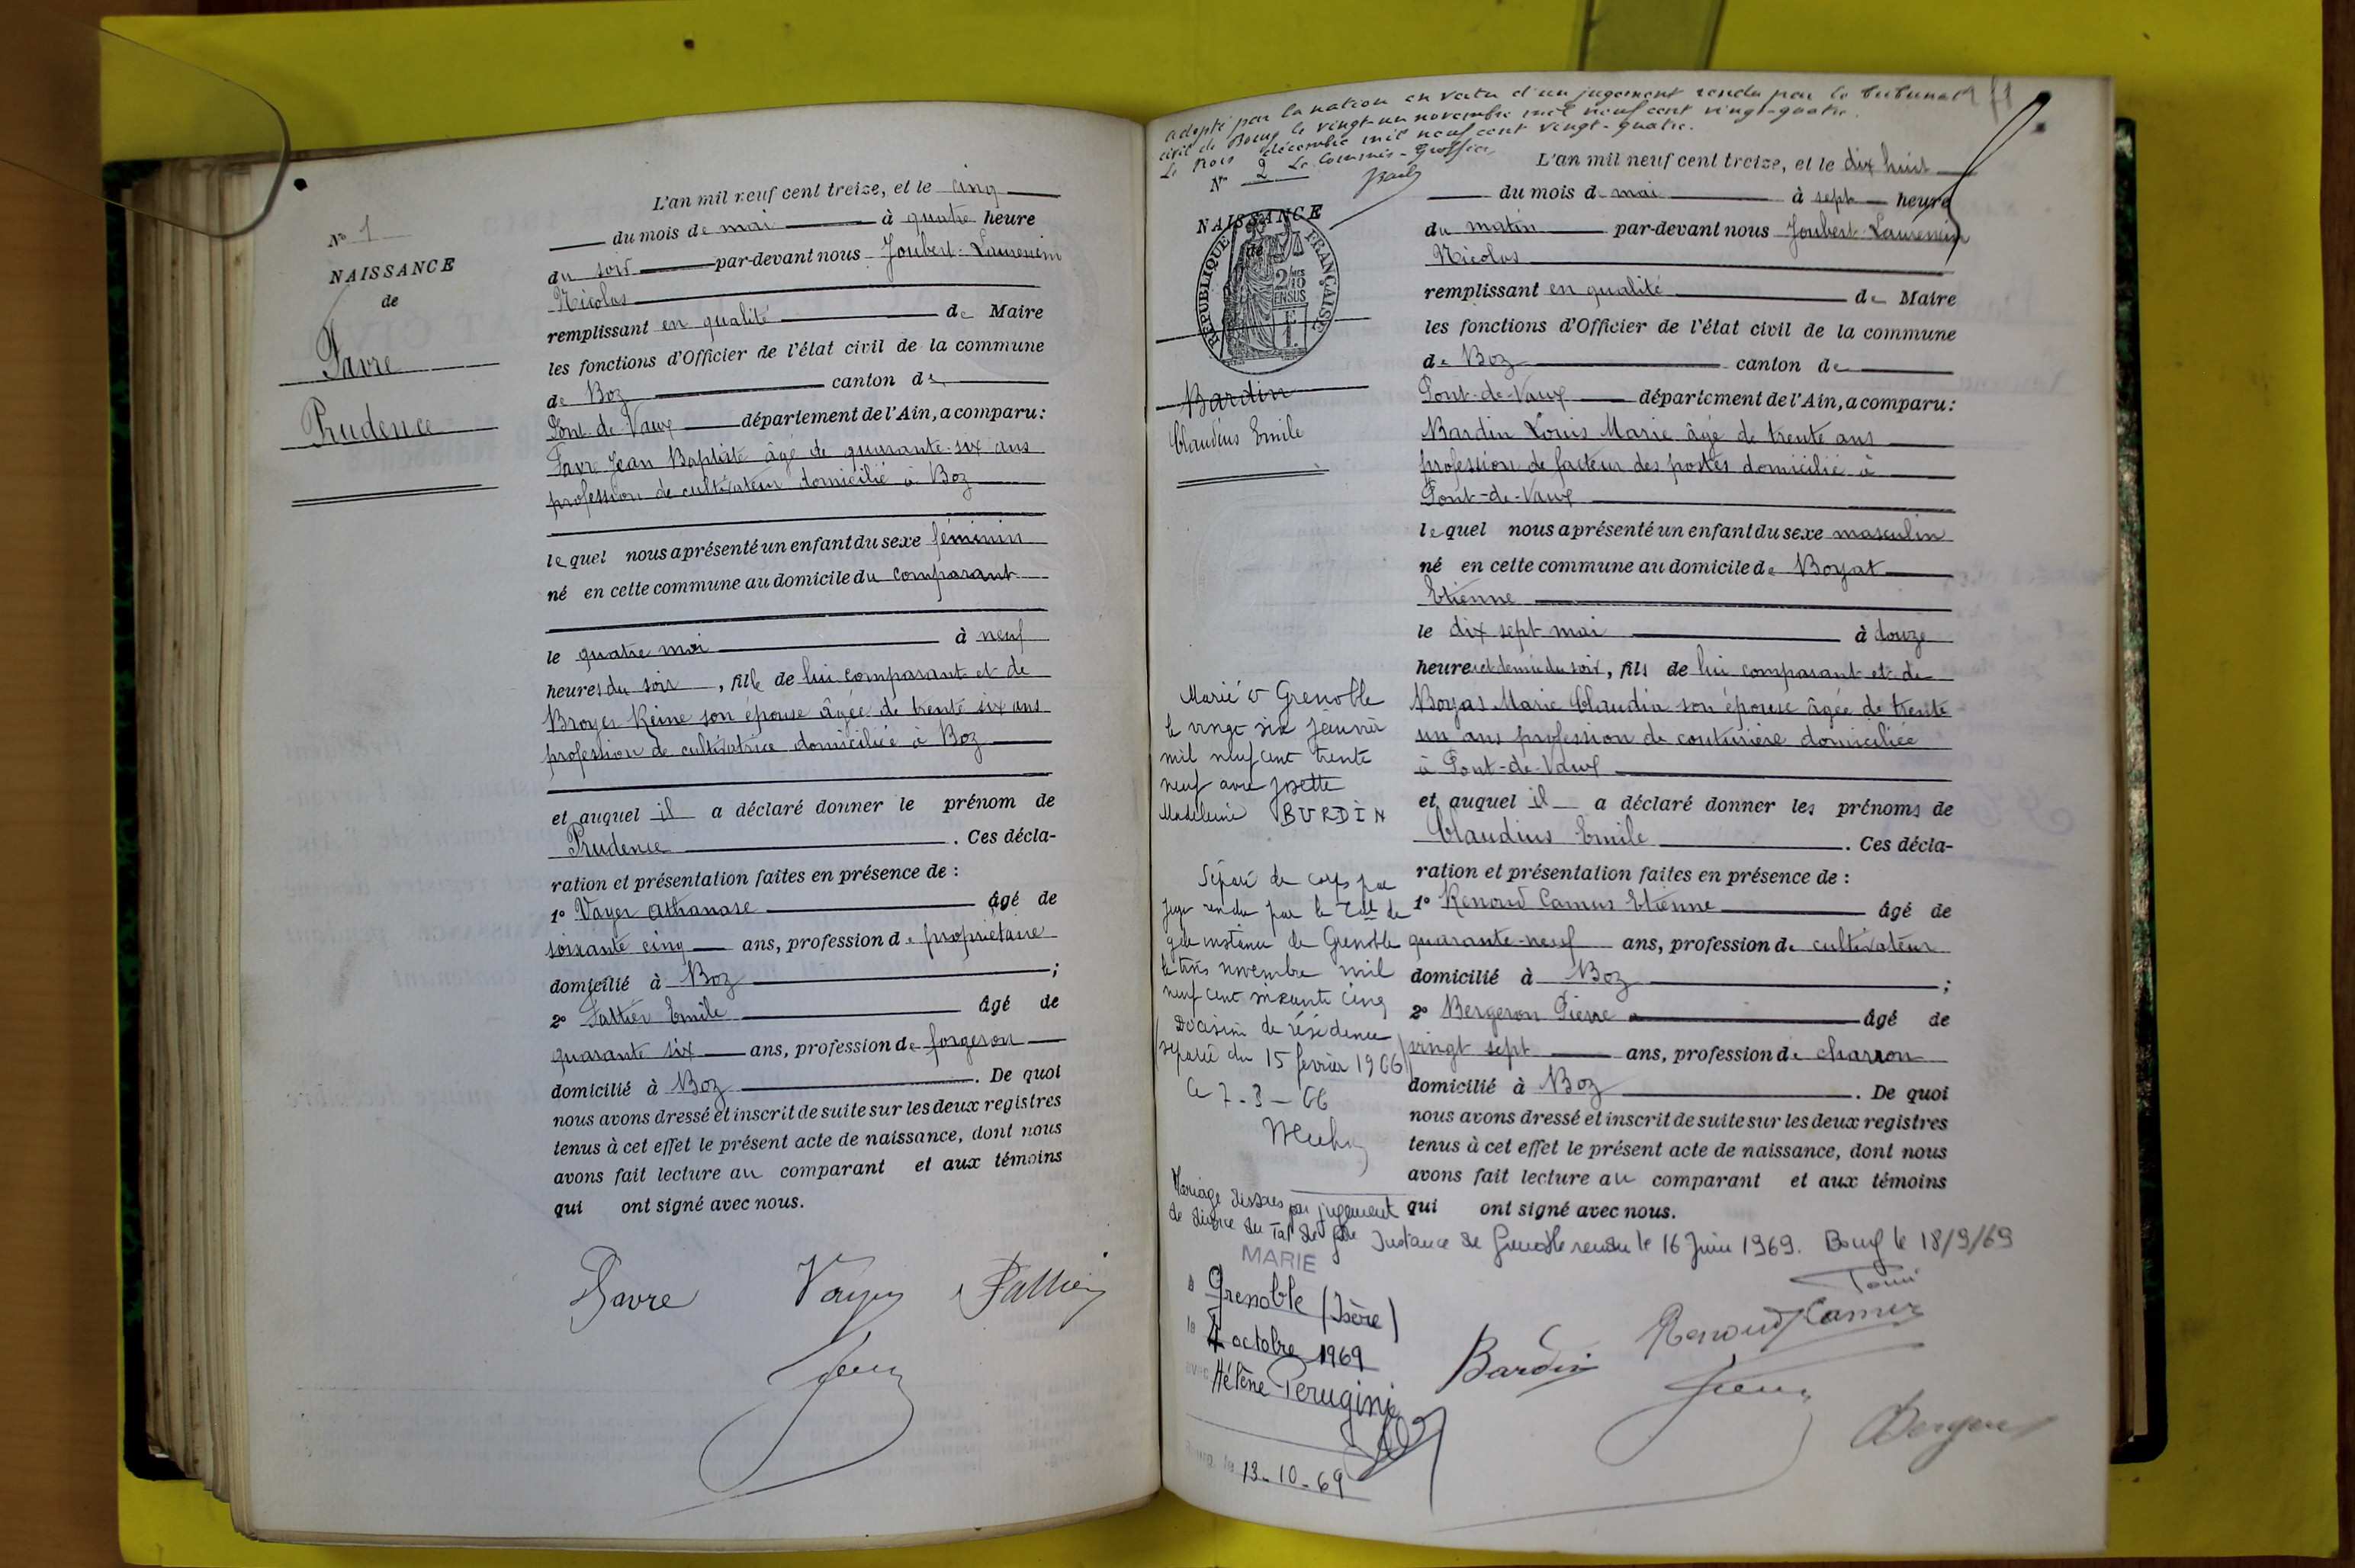 N° 1
NAISSANCE
de
Favre
Prudence
L'an mil neuf cent treize, et le cinq
du mois de mai à quatre heure
du soir par-devant nous Joubert-Laurencin
Nicolas
remplissant en qualité de Maire
les fonctions d'Officier de l'état civil de la commune
de Boz canton de
Pont-de-Vaux département de l'Ain, a comparu:
Favre Jean Baptiste âgé de quarante-six ans
profession de cultivateur domicilié à Boz
lequel nous a présenté un enfant du sexe féminin
né en cette commune au domicile du comparant
le quatre mai à neuf
heures du soir, fille de lui comparant et de
Broyer Reine son épouse âgée de trente six ans
profession de cultivatrice domiciliée à Boz
et auquel il a déclaré donner le prénom de
Prudence. Ces décla-
ration et présentation faites en présence de :
1° Vayer Athanase âgé de
soixante cinq ans, profession de propriétaire
domicilié à Boz;
2° Pattier Emile âgé de
quarante six ans, profession de forgeron
domicilié à Boz. De quoi
nous avons dressé et inscrit de suite sur les deux registres
tenus à cet effet le présent acte de naissance, dont nous
avons fait lecture au comparant et aux témoins
qui ont signé avec nous.
Favre Vayer
adopté par la nation en vertu d'un jugement rendu par le tribunal
civil de Bourg le vingt-un novembre mil neuf cent vingt-quatre.
Le trois décembre mil neuf cent vingt-quatre.
Le Commis-Greffier
N° 2
NAISSANCE
de
RÉPUBLIQUE FRANÇAISE
2/10
EN SUS
Bardin
Claudius Emile
L'an mil neuf cent treize, et le dix huit
du mois de mai à sept heure
du matin par-devant nous Joubert-Laurencin
Nicolas
remplissant en qualité de Maire
les fonctions d'Officier de l'état civil de la commune
de Boz canton de
Pont-de-Vaux département de l'Ain, a comparu:
Bardin Louis Marie âgé de trente ans
profession de facteur des postes domicilié à
Pont-de-Vaux
lequel nous a présenté un enfant du sexe masculin
né en cette commune au domicile de Boyat
Etienne
le dix sept mai à douze
heures et demie du soir, fils de lui comparant et de
Boyas Marie Claudia son épouse âgée de trente
un ans profession de couturière domiciliée
à Pont-de-Vaux
et auquel il a déclaré donner les prénoms de
Claudius Emile. Ces décla-
ration et présentation faites en présence de :
1° Renoud Camus Etienne âgé de
quarante-neuf ans, profession de cultivateur
domicilié à Boz;
2° Bergeron Pierre âgé de
vingt sept ans, profession de charron
domicilié à Boz. De quoi
nous avons dressé et inscrit de suite sur les deux registres
tenus à cet effet le présent acte de naissance, dont nous
avons fait lecture au comparant et aux témoins
qui ont signé avec nous.
Marié à Grenoble
le vingt six janvier
mil neuf cent trente
neuf avec Josette
Madeleine BURDIN
Séparé de corps par
jugt rendu par le Tal de
gde instance de Grenoble
le trois novembre mil
neuf cent soixante cinq
(Décision de résidence
séparée du 15 février 1966)
Ce 7-3-66
Mariage dissous par jugement
de divorce du Tal de gde Instance de Grenoble rendu le 16 Juin 1969. Bourg le 18/9/69
MARIE
à Grenoble (Isère)
le 4 octobre 1969
avec Hélène Perugini
Bourg, le 13-10-69
Bardin Renoud Camus